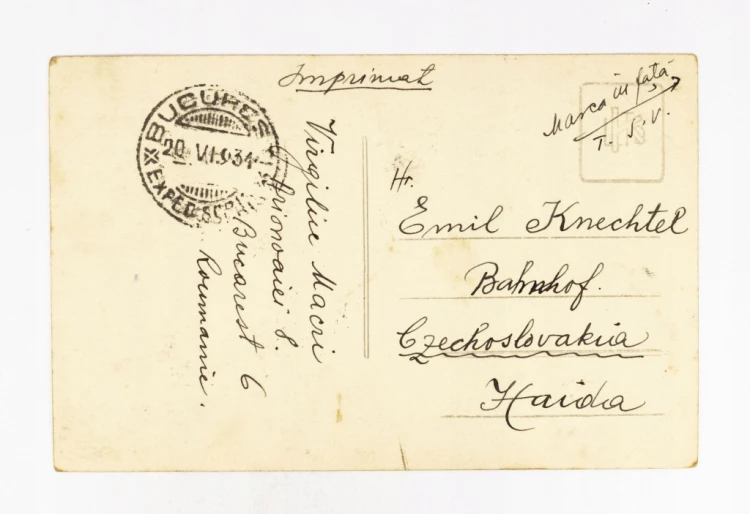 Imprimat
BUCUREȘTI
20 VI.934
EXPED.
Marca în față
T. S. V.
Virgiliu Macri
8.
Bucarest 6
Roumanie.
Hr.
Emil Knechtel
Bahnhof.
Czechoslovakia
Haida